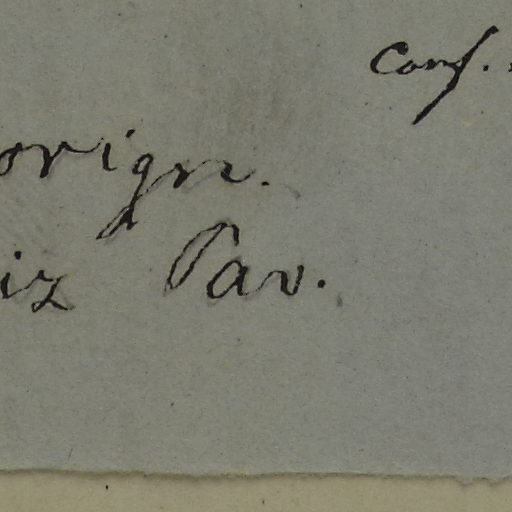 Conf.
orign.
iz Pav.